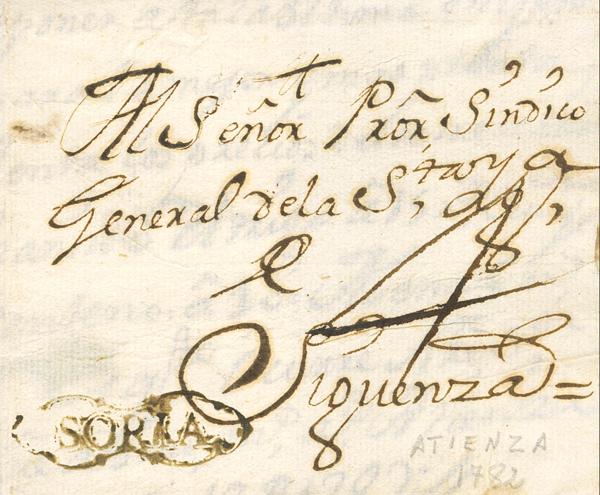 Al Señor Prõr Sindico
General de la S.
Siguenza =
SORIA
ATIENZA
1782